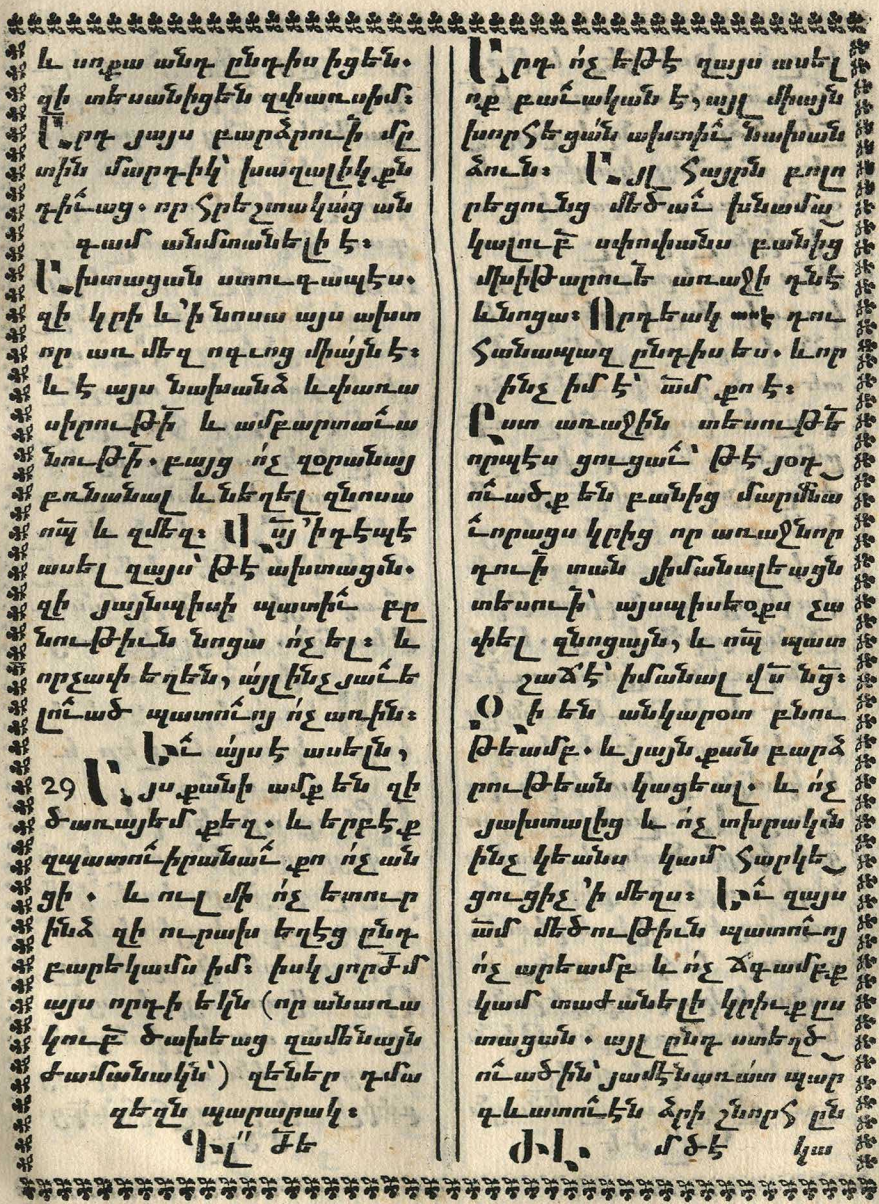 և սոքա անդ ընդիս իցեն.
զի տեսանիցեն զփառսիմ։
Արդ յայս բարձրուի մը
տին մարդիկ՝ խաղալիկքն
դիւաց. որ հրեշտակաց ան
գամ անմտանելի է։
Ախտացան ստուգապէս.
զի կրի և՚ի նոսա այս ախտ
որ առ մեզ ոգւոց միայն է։
և է այս նախանձ և փառա
սիրութի և ամբարտաւա
նութի. բայց ոչ զօրանայ
բռնանալ և նեղել զնոսա
ոպ և զմեզ։
ասել զայս՝ թէ ախտացան.
զի յայնպիսի պատիւ բը
նութիւն նոցա ոչ ել։ և
որչափ եղեն, այլ ինչ յաւե
լուած պատուոյ ոչ առին։
Եւ այս է ասելն,
29 Այսքանի ամք են զի
ծառայեմ քեզ. և երբէք
զպատուիրանաւ քո ոչ ան
ցի. և ուլ մի ոչ ետուր
ինձ զի ուրախ եղէց ընդ
բարեկամս իմ։ իսկ յորժմ
այս որդի եկն (որ անառա
կուբ ծախեաց զամենայն
ժամանակն՝) զեներ դմա
զեզն պարարակ։
Արդ ոչ եթէ զայս ասել
ոք բաւական է, այլ միայն
խորհեցան ախտիւ նախան
ձուն։ Այլ հայրն բոլո
րեցունց մեծաւ խնամա
կալուբ սփոփանս բանից
մխիթարուե առաջի դնէ
և նոցա։ Որդեակ դու
հանապազ ընդիս ես. և որ
ինչ իմ է՝ ամ քո է։
Ըստ առաջին տեսութե
որպէս ցուցաւ՝ թէ յօդ
ուածք են բանից մարմնա
ւորացս կրից որ առաջնոր
դուի տան յիմանալեացն
տեսուի՝ այսպիսեօքս չա
փել զնոցայն, և ոպ պատ
շաճէ՝ իմանալ վս նց։
Օի են անկարօտ բնու
թեամբ. և յայնքան բարձ
րութեան կացեալ. և ոչ
յախտալից և ոչ տխրական
ինչ կեանս կամ հարկե
ցուցիչ ՚ի մեղս։ Եւ զայս
ամ մեծութիւն պատուոյ
ոչ արեամբ և ոչ ճգամբք
կամ տաժանելի կրիւք ըս
տացան. այլ ընդ ստեղծ
ուածին՝ յամենառատ պար
գևատուէն ձրի շնորհ ըն
մծէ կա